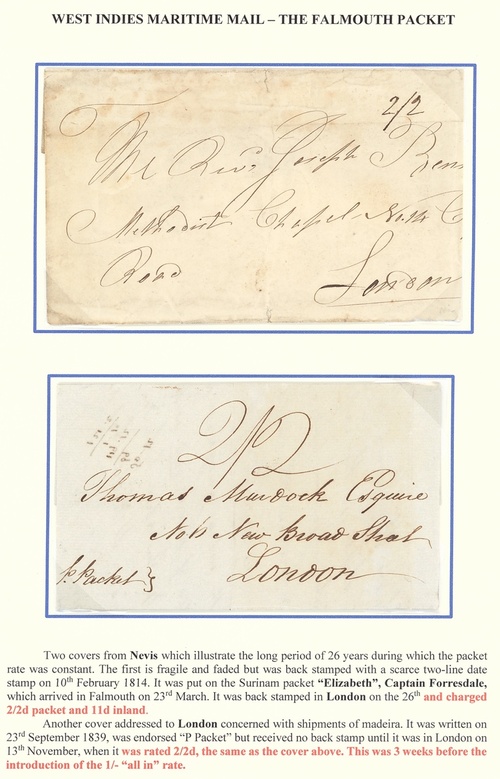 WEST INDIES MARITIME MAIL – THE FALMOUTH PACKET
2/2
The Revd. Joseph Ben
Methodist Chapel
Road
London
2/2
Thomas Murdock Esquire
New Broad
London
p Packet
Two covers from Nevis which illustrate the long period of 26 years during which the packet
rate was constant. The first is fragile and faded but was back stamped with a scarce two-line date
stamp on 10th February 1814. It was put on the Surinam packet “Elizabeth”, Captain Forresdale,
which arrived in Falmouth on 23rd March. It was back stamped in London on the 26th and charged
2/2d packet and 11d inland.
Another cover addressed to London concerned with shipments of madeira. It was written on
23rd September 1839, was endorsed “P Packet” but received no back stamp until it was in London on
13th November, when it was rated 2/2d, the same as the cover above. This was 3 weeks before the
introduction of the 1/- “all in” rate.